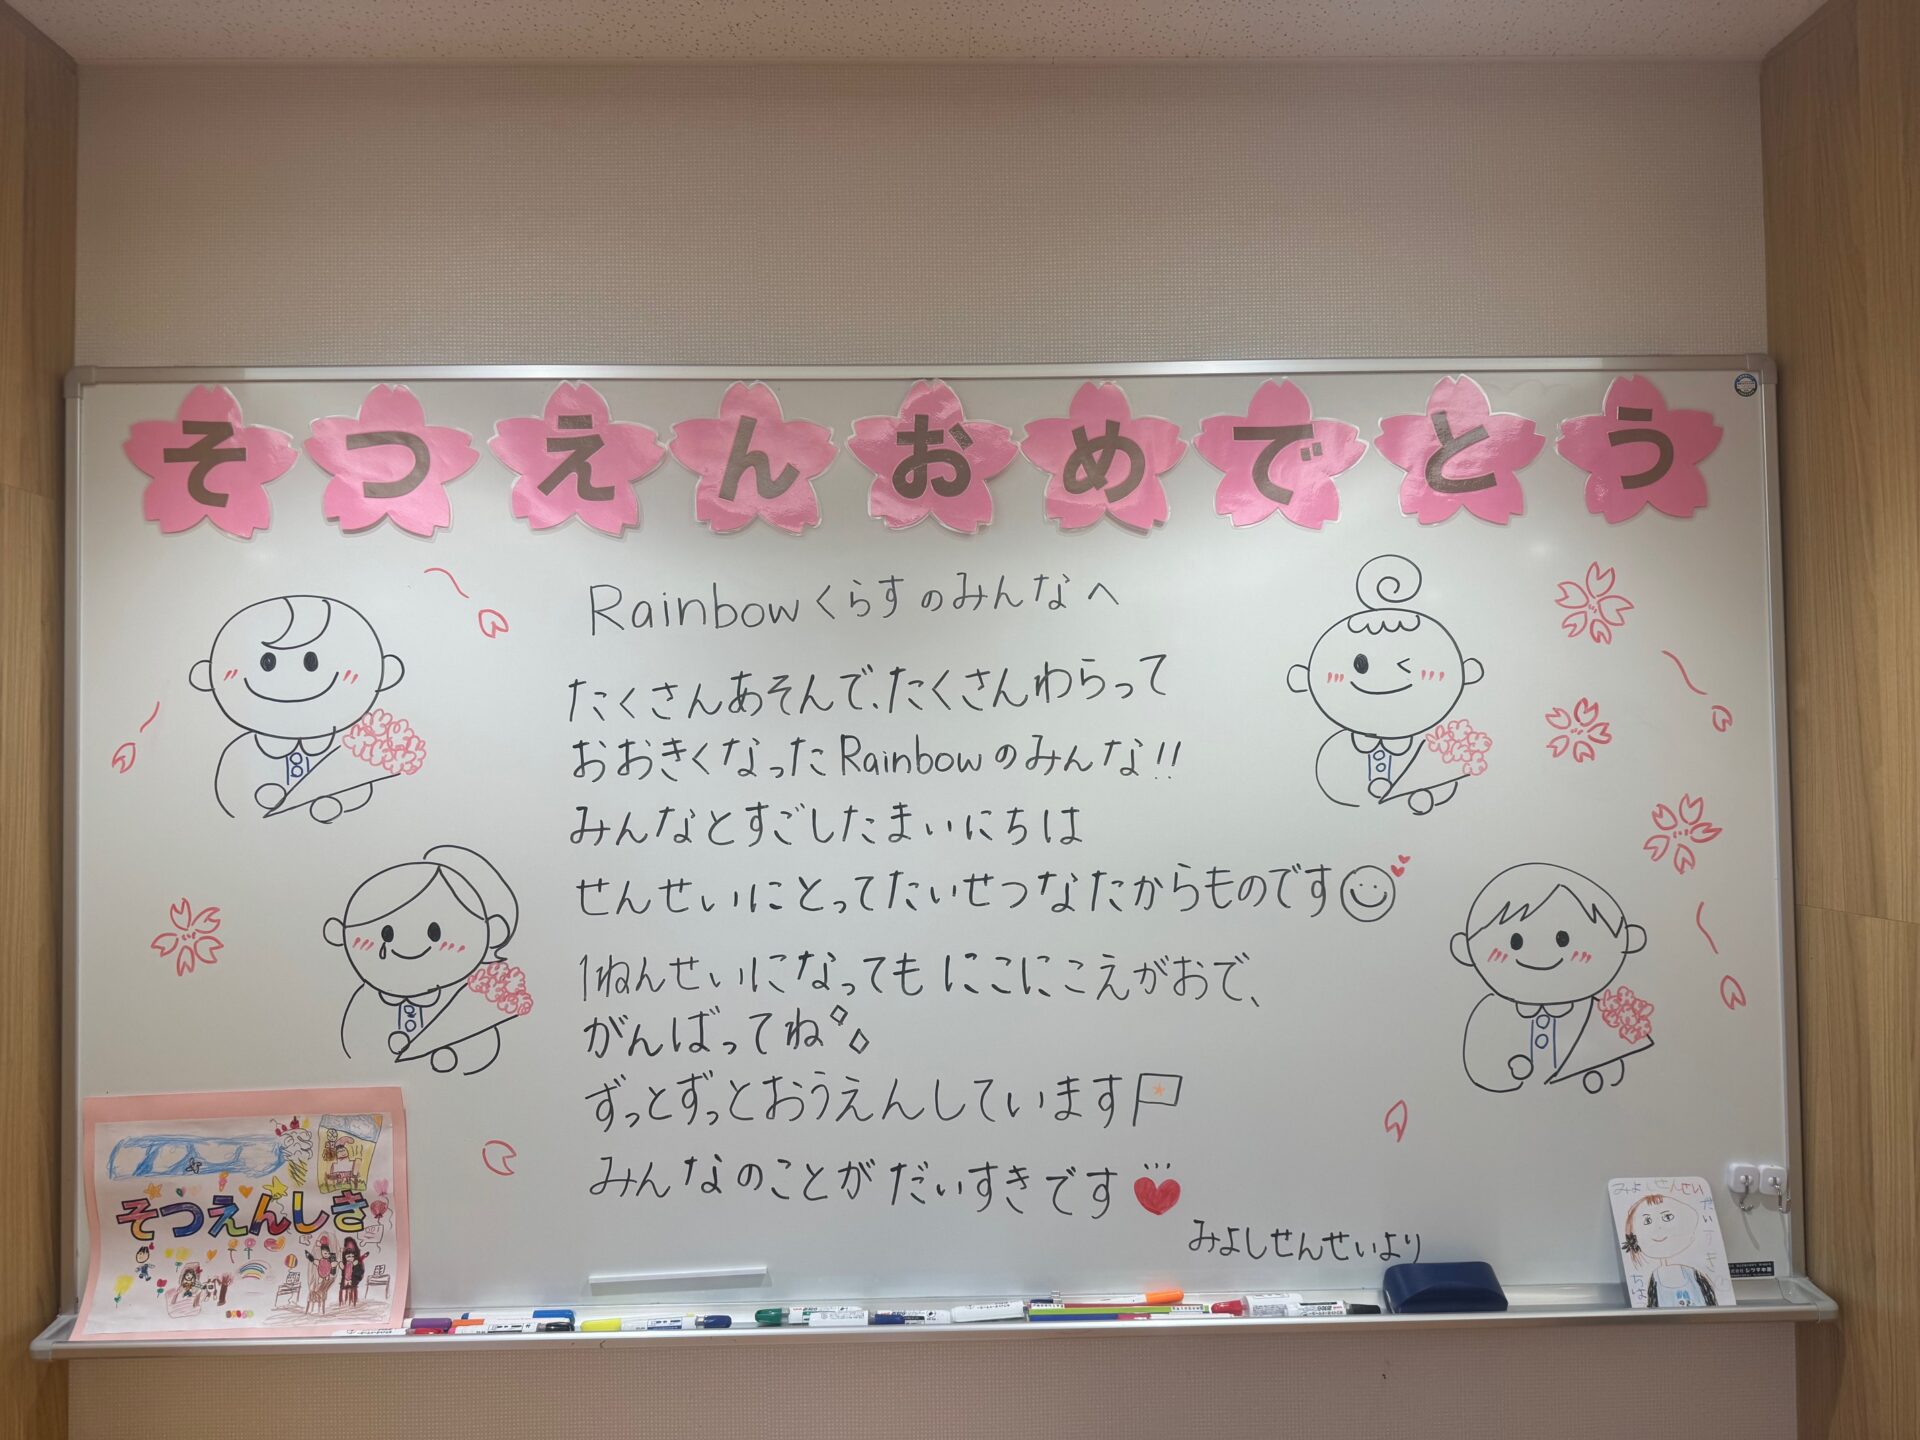 そつえんおめでとう
Rainbowくらすのみんなへ
たくさんあそんで、たくさんわらって
おおきくなったRainbowのみんな!!
みんなとすごしたまいにちは
せんせいにとってたいせつなたからものです
1ねんせいになってもにこにこえがおで、
がんばってね
ずっとずっとおうえんしています
みんなのことがだいすきです
みよしせんせいより
そつえんしき
みよしせんせい